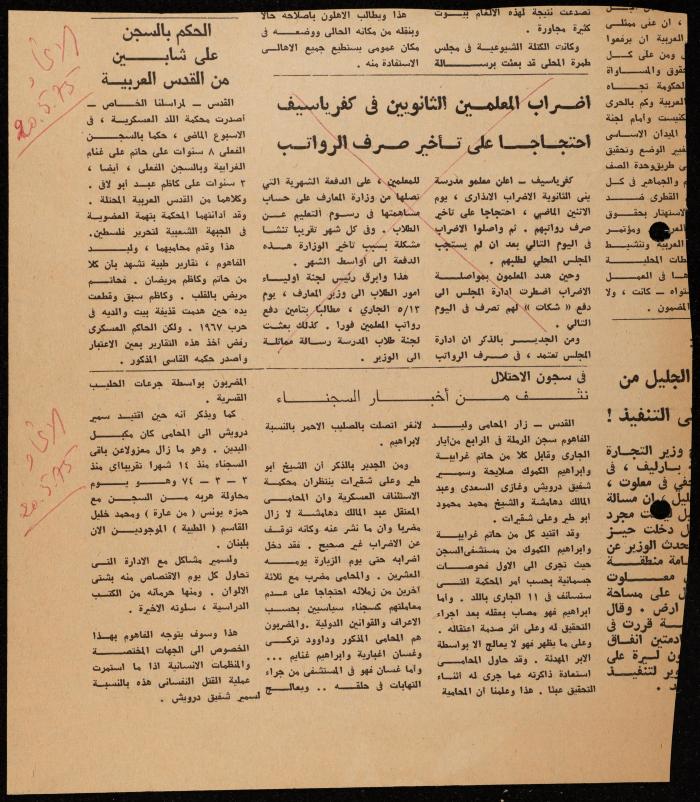 تصدعت نتيجة لهذه الالغام بيوت
كثيرة مجاورة .
وكانت الكتلة الشيوعية في مجلس
طمرة المحلي قد بعثت برسالة
هذا ويطالب الاهلون باصلاحه حالا
وبنقله من مكانه الحالي ووضعه في
مكان عمومي يستطيع جميع الاهالي
الاستفادة منه .
اضراب المعلمين الثانويين في كفرياسيف
احتجاجا على تأخير صرف الرواتب
كفرياسيف ــ اعلن معلمو مدرسة
يني الثانوية الاضراب الانذاري ، يوم
الاثنين الماضي ، احتجاجا على تأخير
صرف رواتبهم . ثم واصلوا الاضراب
في اليوم التالي بعد ان لم يستجب
المجلس المحلي لطلبهم .
وحين هدد المعلمون بمواصلة
الاضراب اضطرت ادارة المجلس الى
دفع « شكات » لهم تصرف في اليوم
التالي .
ومن الجدير بالذكر ان ادارة
المجلس تعتمد ، في صرف الرواتب
للمعلمين ، على الدفعة الشهرية التي
تصلها من وزارة المعارف على حساب
مساهمتها في رسوم التعليم عن
الطلاب . وفي كل شهر تقريبا تنشأ
مشكلة بسبب تأخير الوزارة هذه
الدفعة الى أواسط الشهر .
هذا وابرق رئيس لجنة اولياء
امور الطلاب الى وزير المعارف ، يوم
٥/١٣ الجاري ، مطالبا بتأمين دفع
رواتب المعلمين فورا . كذلك بعثت
لجنة طلاب المدرسة رسالة مماثلة
الى الوزير .
الحكم بالسجن
على شابين
من القدس العربية
القدس ــ لمراسلنا الخاص ــ
أصدرت محكمة اللد العسكرية ، في
الاسبوع الماضي ، حكما بالسجن
الفعلي ٨ سنوات على حاتم علي غنام
الغرابية وبالسجن الفعلي ، أيضا ،
٣ سنوات على كاظم عبد ابو لافي .
وكلاهما من القدس العربية المحتلة .
وقد ادانتهما المحكمة بتهمة العضوية
في الجبهة الشعبية لتحرير فلسطين.
هذا وقدم محاميهما ، وليد
الفاهوم ، تقارير طبية تشهد بأن كلا
من حاتم وكاظم مريضان . فحاتم
مريض بالقلب . وكاظم سبق وقطعت
يده حين هدمت قذيفة بيت والديه في
حرب ١٩٦٧ . ولكن الحاكم العسكري
رفض أخذ هذه التقارير بعين الاعتبار
وأصدر حكمه القاسي المذكور .
في سجون الاحتلال
نتف من أخبار السجناء
القدس ــ زار المحامي وليد
الفاهوم سجن الرملة في الرابع من أيار
الجاري وقابل كلا من حاتم غرابية
وابراهيم الكموك صلايحة وسمير
شفيق درويش وغازي السعدي وعبد
المالك دهامشة والشيخ محمد محمود
أبو طير وعلي شقيرات .
وقد اقتيد كل من حاتم غرابية
وابراهيم الكموك من مستشفى السجن
حيث تجرى الى الاول فحوصات
جسمانية بحسب امر المحكمة التي
ستستأنف في ١١ الجاري باللد . وأما
ابراهيم فهو مصاب بعقله بعد اجراء
التحقيق له وعلى اثر صدمة اعتقاله .
وعلى ما يظهر فهو لا يعالج الا بواسطة
الابر المهدئة . وقد حاول المحامي
استعادة ذاكرته عما جرى له أثناء
التحقيق عبثا . هذا وعلمنا أن المحامية
لانغر اتصلت بالصليب الاحمر بالنسبة
لابراهيم .
ومن الجدير بالذكر أن الشيخ أبو
طير وعلي شقيرات ينتظران محكمة
الاستئناف العسكرية وان المحامي
المعتقل عبد المالك دهامشة لا زال
مضربا وان ما نشر عنه وكأنه توقف
عن الاضراب غير صحيح . فقد دخل
اضرابه حتى يوم الزيارة يومه
العشرين . والمحامي مضرب مع ثلاثة
آخرين من زملائه احتجاجا على عدم
معاملتهم كسجناء سياسيين بحسب
الاعراف والقوانين الدولية . والمضربون
هم المحامي المذكور وداوود تركي
وغسان اغبارية وابراهيم غنايم ...
وأما غسان فهو في المستشفى من جراء
التهابات في حلقه .. ويعالج
المضربون بواسطة جرعات الحليب
القسرية .
كما ويذكر أنه حين اقتيد سمير
درويش الى المحامي كان مكبل
اليدين . وهو ما زال معزولا عن باقي
السجناء منذ ١٤ شهرا تقريبا أي منذ
٣ – ٣ – ٧٤ وهو يوم
محاولة هربه من السجن مع
حمزه يونس ( من عارة ) ومحمد خليل
القاسم ( الطيبة ) الموجودين الان
بلبنان .
ولسمير مشاكل مع الادارة التي
تحاول كل يوم الاقتصاص منه بشتى
الالوان . ومنها حرمانه من الكتب
الدراسية ، سلوته الاخيرة .
هذا وسوف يتوجه الفاهوم بهذا
الخصوص الى الجهات المختصة
والمنظمات الانسانية اذا ما استمرت
عملية القتل النفساني هذه بالنسبة
لسمير شفيق درويش .
الاتحاد
20.5.75
الاتحاد
20.5.75
، ان عنى ممثلي
العربية ان يرفعوا
ومن على كل
حقوق والمساواة
الحكومة تجاه
العربية وكم بالحرى
كنيست وأمام لجنة
الميدان الاساسي
غيير الوضع وتحقيق
طريق وحدة الصف
والجماهير في كل
القطري ضد
الاستهتار بحقوق
ومؤتمر
العربية وتنشيط
المحلية
في العمل
، كانت ، ولا
المضمون .
الجليل من
ى التنفيذ !
وزير التجارة
بارليف ، في
في معلوت ،
ان مسألة
مجرد
دخلت حيز
تحدث الوزير عن
امة منطقة
معلوت
على مساحة
ارض . وقال
قررت في
ادمتين انفاق
ون ليرة على
وير لتنفيذ